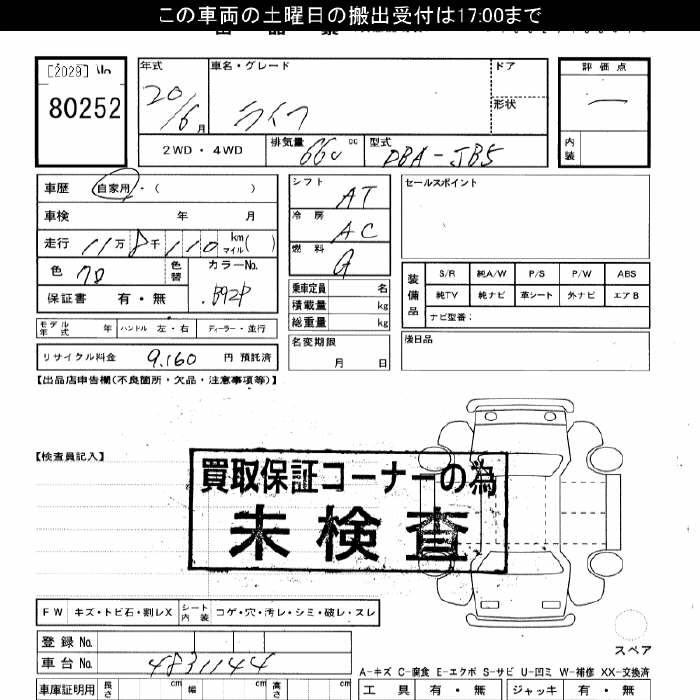 この車両の土曜日の搬出受付は17:00まで
[2029] No
80252
年式 20/6月
車名・グレード ライフ
ドア
形状
評価点
内装
2WD・4WD
排気量 660 cc
型式 DBA-JB5
車歴 自家用・( )
シフト AT
セールスポイント
車検 年 月
冷房 AC
走行 11万8千110 km マイル( )
燃料 G
色 クロ
色替
カラーNo. B92P
保証書 有・無
乗車定員 名
積載量 kg
総重量 kg
装備品 S/R 純A/W P/S P/W ABS
純TV 純ナビ 革シート 外ナビ エアB
ナビ型番:
モデル年式 年 ハンドル 左・右 ディーラー・並行
名変期限 月 日
後日品
リサイクル料金 9,160 円 預託済
【出品店申告欄(不良箇所・欠品・注意事項等)】
【検査員記入】
買取保証コーナーの為
未検査
FW キズ・トビ石・割レX シート内装 コゲ・穴・汚レ・シミ・破レ・スレ
登録 No.
車台 No. 4831144
スペア
A-キズ C-腐食 E-エクボ S-サビ U-凹ミ W-補修 XX-交換済
車庫証明用 長さ cm 幅 cm 高さ cm
工具 有・無 ジャッキ 有・無